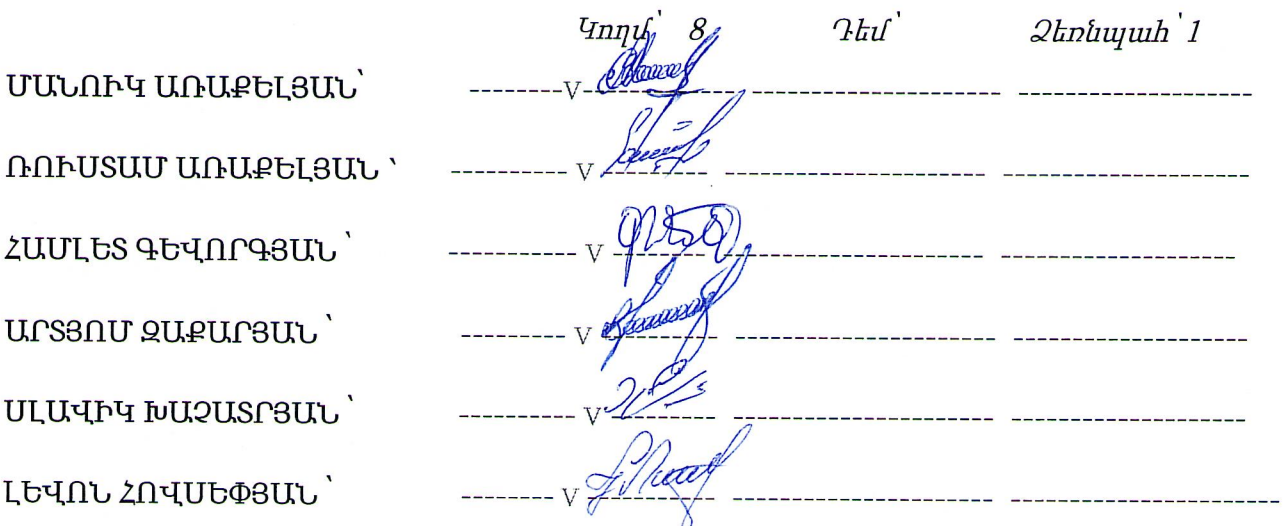 Կողմ՝ 8 Դեմ՝ Ձեռնպահ՝ 1
ՄԱՆՈՒԿ ԱՌԱՔԵԼՅԱՆ՝ --------V-------------------------------- ------------------------
ՌՈՒՍՏԱՄ ԱՌԱՔԵԼՅԱՆ ՝ ---------- V ----------- -------------------------- -------------------------
ՀԱՄԼԵՏ ԳԵՎՈՐԳՅԱՆ ՝ ----------- V ----------- -------------------------- ------------------------
ԱՐՏՅՈՄ ԶԱՔԱՐՅԱՆ ՝ --------- V ------------ -------------------------- ------------------------
ՍԼԱՎԻԿ ԽԱՉԱՏՐՅԱՆ ՝ ---------- V------------ -------------------------- ------------------------
ԼԵՎՈՆ ՀՈՎՍԵՓՅԱՆ ՝ --------- V ------------ -------------------------- ----------------------------